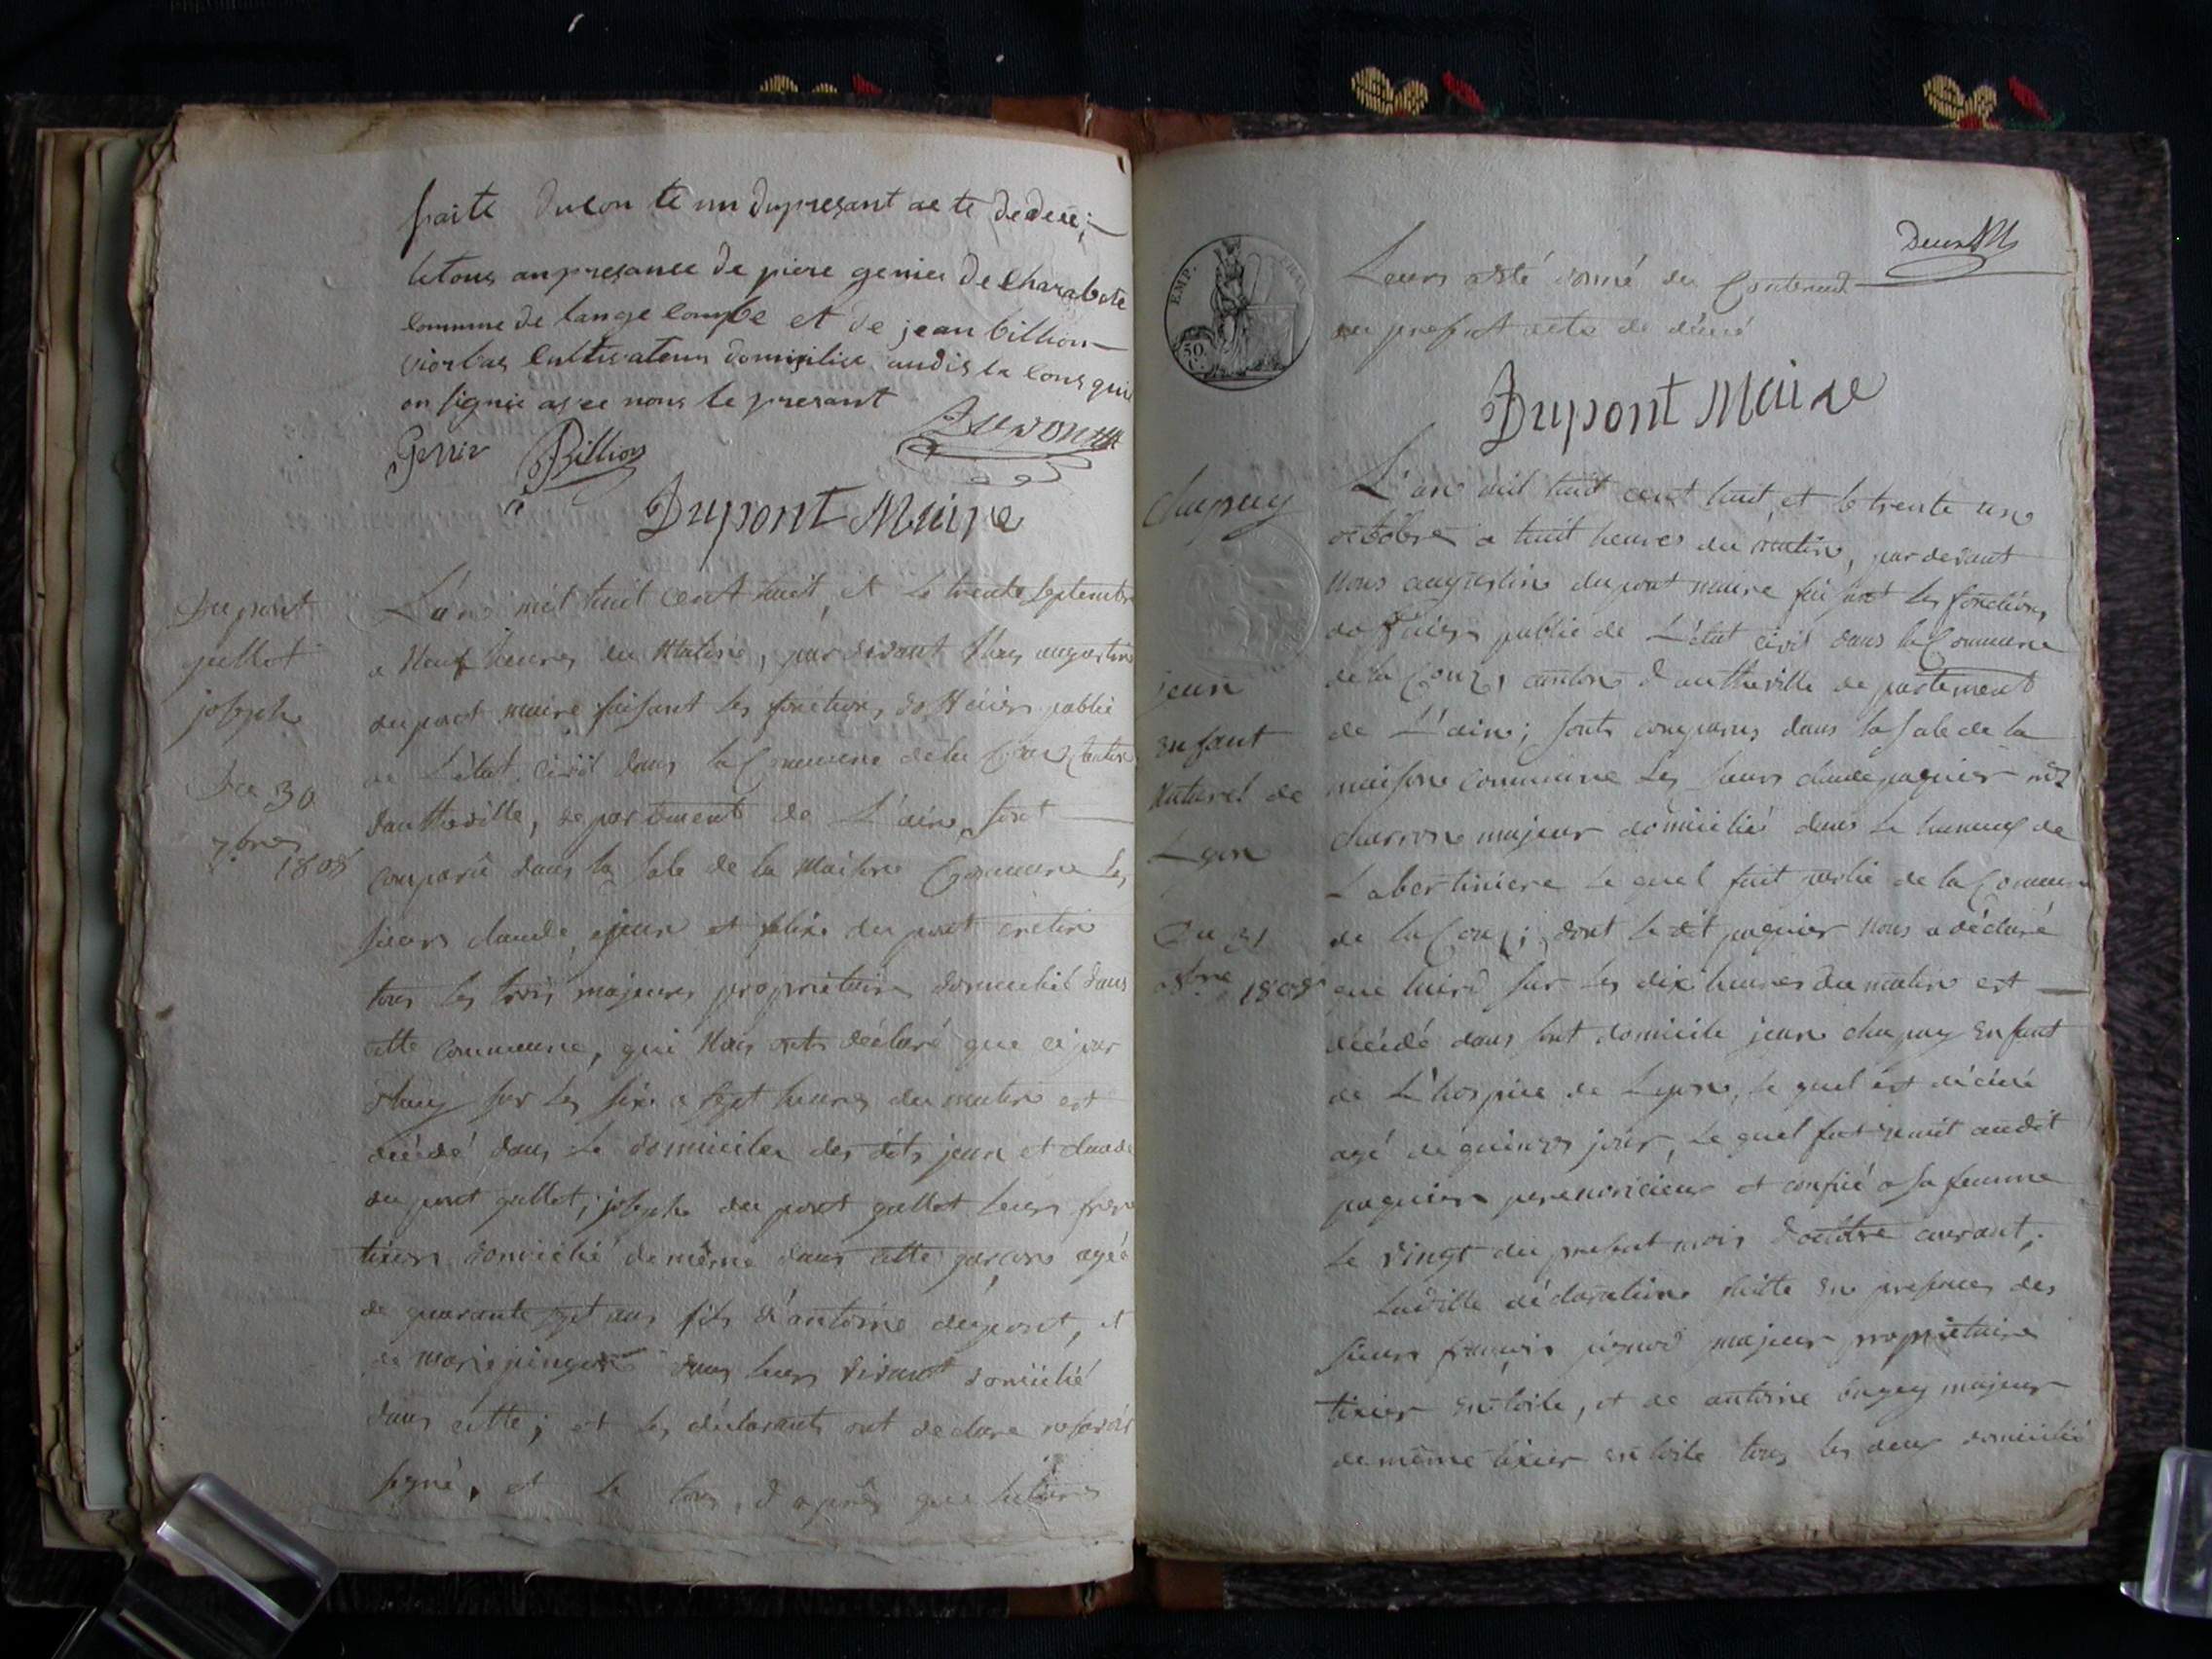 faite du con te nu du presant ac te de dece;
le tous an presance de piere genier de Charabote
commune de lange combe et de jean billion
viorbas Cultivateur domisilie audis la cous qui
on signie avec nous le presant
Genier Billion Dupont
Dupont Maire
Dupont
gullot
joseph
Du 30
7bre
1808
L'an mil huit cent huit, et le trente septembre
a neuf heures du matin, par devant Nous augustin
dupont maire faisant les fonctions dofficier public
de L'état civil dans la Commune de la Couz canton
dautheville, departement de L'ain, sont
comparu dans la sale de la Maison Commune Les
sieurs claude, jean et felix du pont cretin
tous les trois majeures proprietaire domicilié dans
cette commune, qui Nous onts déclaré que ce jour
dhuy sur les six a sept heures du matin est
décédé dans le domicile des dits jean et claude
du pont gullot, joseph du pont gullot leurs frere
tixier domicilié de même dans cette garçon agé
de quarante sept ans fils d'antoine dupont, et
de marie pingon dans leurs vivant domicilié
dans cette; et les déclarants ont declare ne savoir
signé, et le tous, d'après que lecture
Deux
Leurs a été donné du Contenud
du present acte de décé
EMP. FRAN.
50 C.
Dupont Maire
chapuy
jean
enfant
Naturel de
Lyon
Du 31
8bre 1808
L'an mil huit cent huit, et le trente un
octobre a huit heures du matin, par devant
Nous augustin dupont maire faisant les fonctions
dofficier public de L'état civil dans la Commune
de la Couz, canton d'autheville departement
de L'ain; sonts comparus dans la sale de la
maison commune Les sieurs claude paquier
charron majeur domicilié dans le hameau de
Labertiniere le quel fait partie de la Commune
de la Couz; dont le dit paquier Nous a déclaré
que hierd sur les dix heures du matin est
décédé dans sont domicile jean chapuy enfant
de L'hospice de Lyon, le quel est décédé
agé de quinze jour, le quel fut remit audit
paquier perenoricieur et confié a sa femme
le vingt du present mois d'octobre courant.
Laditte déclaration faitte en presences des
sieurs françois pignod majeur proprietaire
tixier en toile, et de antoine bugey majeur
de même tixier en toile tous les deux domicilié